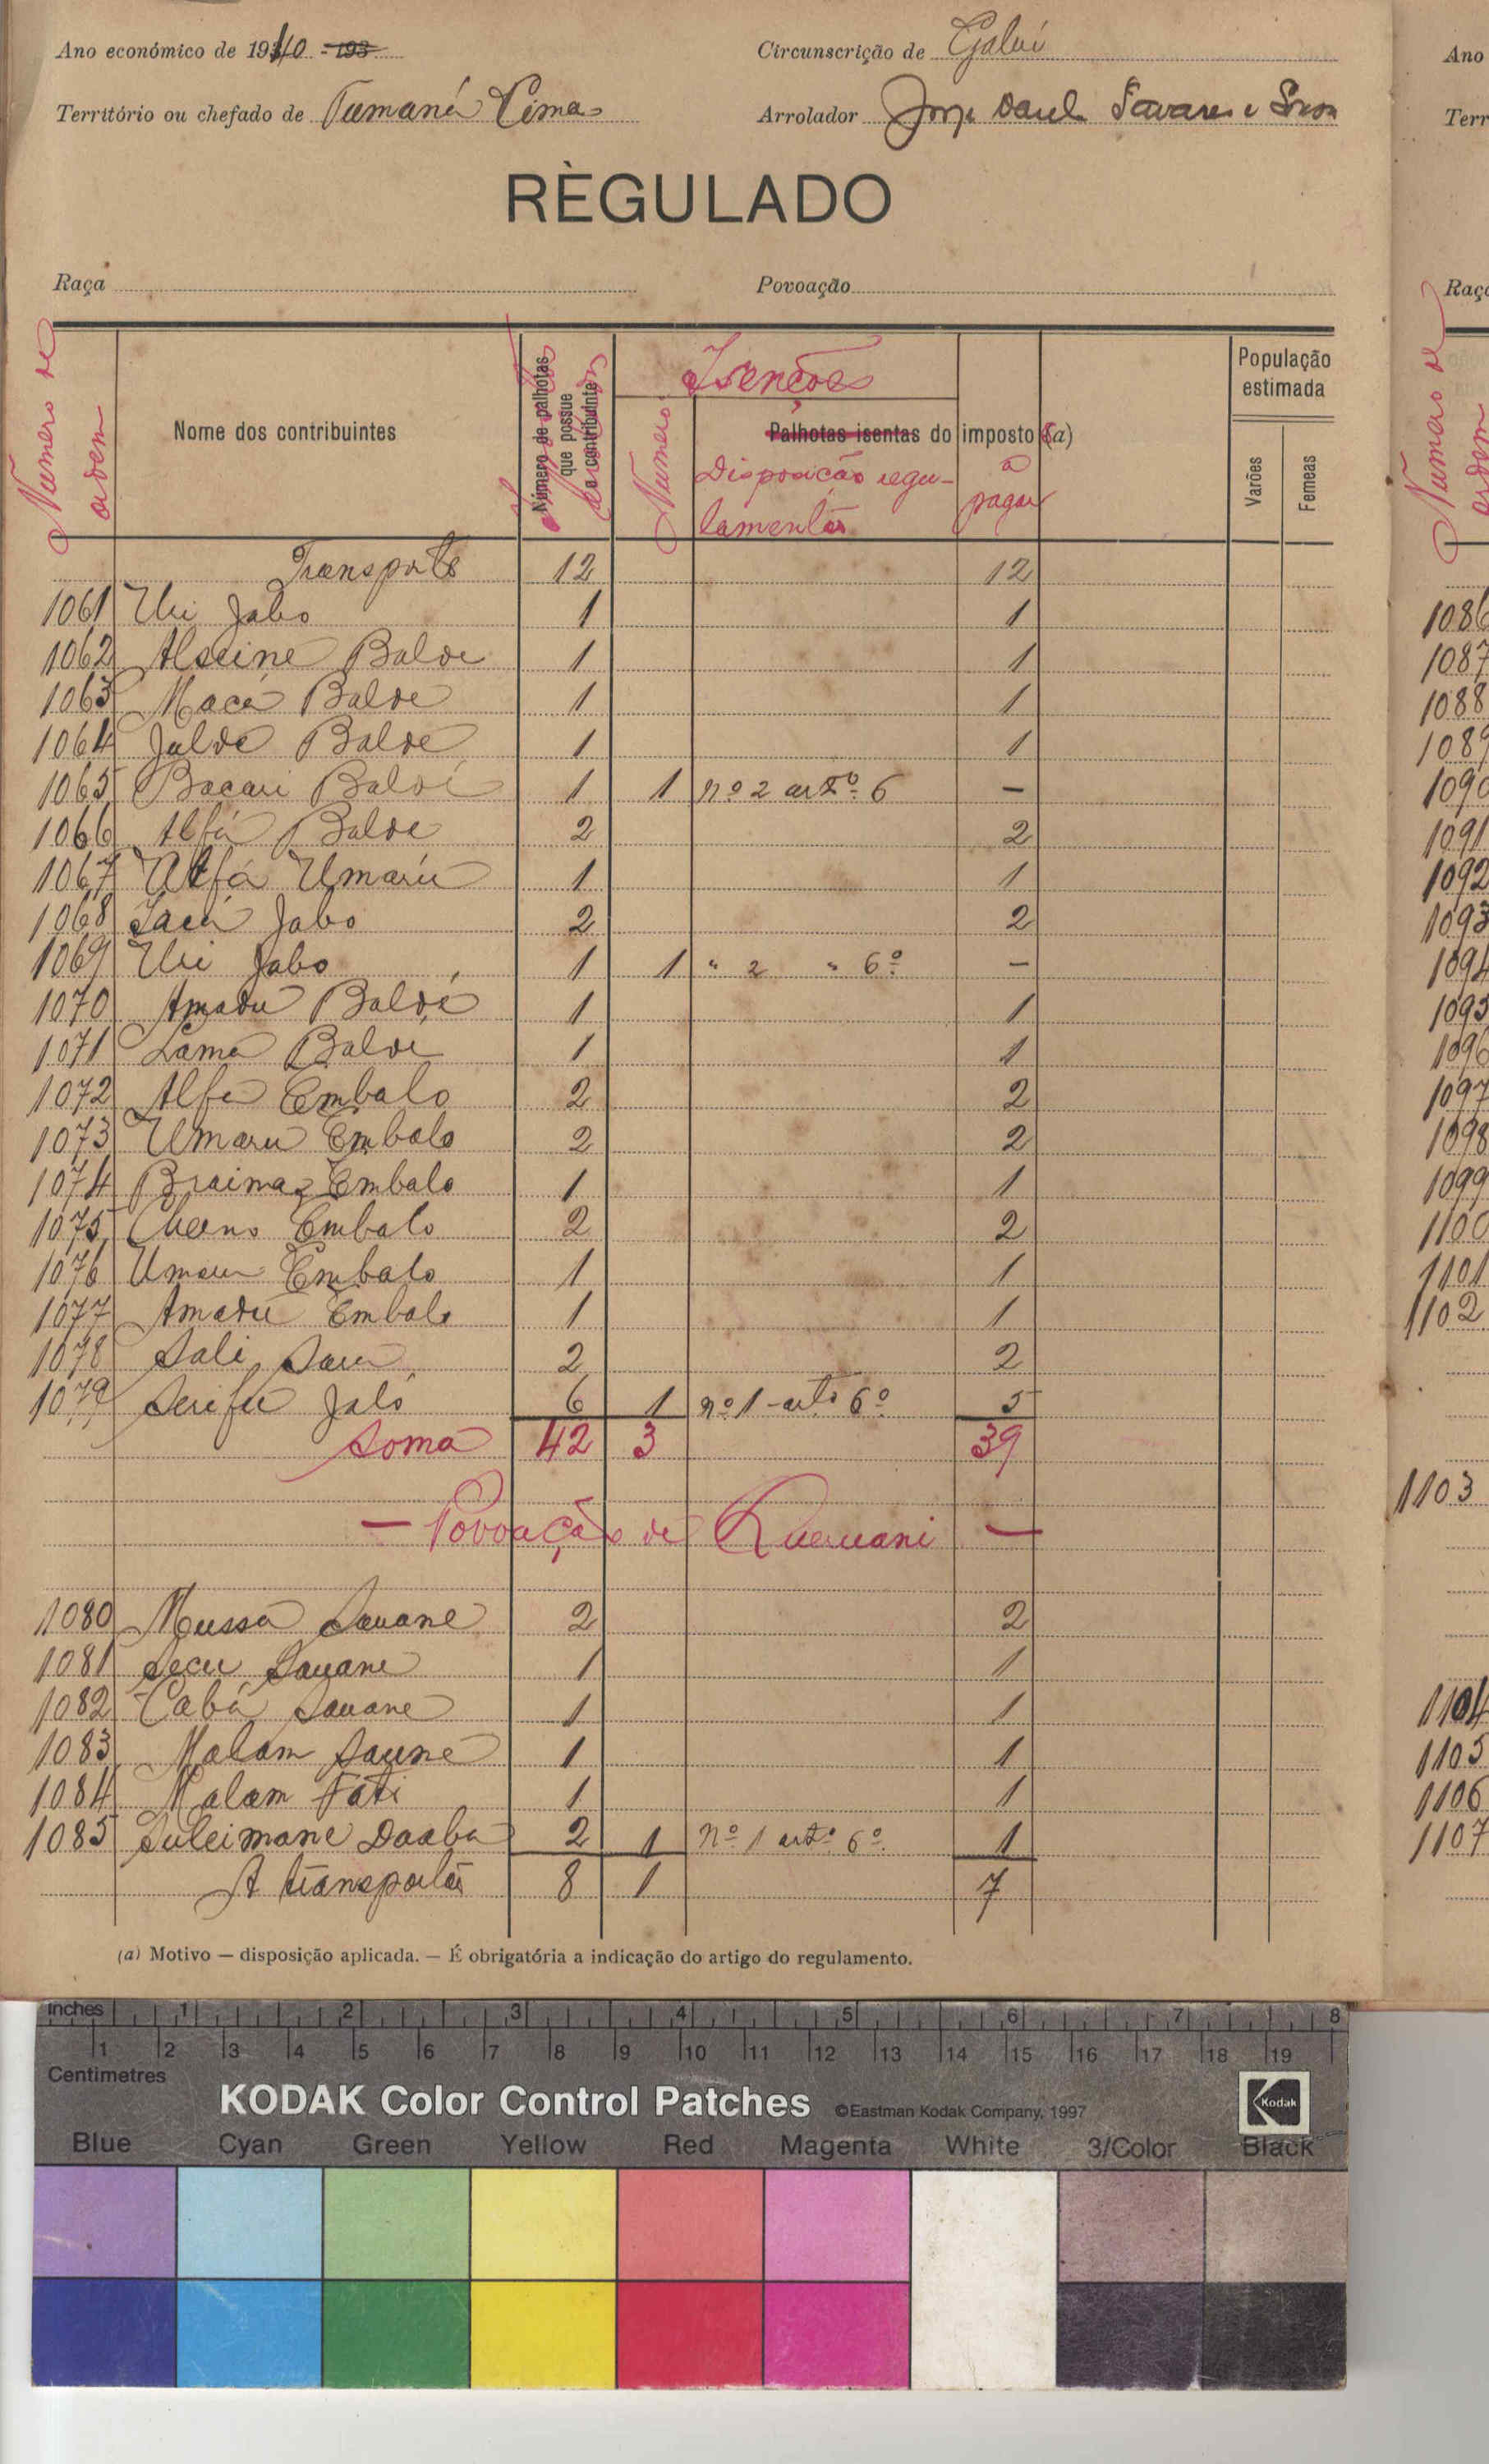 Ano económico de 1940 - 193
Circunscrição de Gabú
Território ou chefado de Tumaná Cima
Arrolador Jorge Tavares e
RÈGULADO
Raça
Povoação
Numero de ordem
Nome dos contribuintes
Número de palhotas que possue o contribuinte
Isenções
Numero
Palhotas isentas do imposto (a)
Disposição regulamentar
a pagar
População estimada
Varões
Femeas
Transporte 12 12
1061 Uri Jabo 1 1
1062 Alseine Balde 1 1
1063 Macá Balde 1 1
1064 Julde Balde 1 1
1065 Bacari Baldé 1 1 nº 2 artº 6 -
1066 Alfá Balde 2 2
1067 Alfá Umarú 1 1
1068 Jabo 2 2
1069 Uri Jabo 1 1 " 2 " 6º -
1070 Amadu Baldé 1 1
1071 Lama Balde 1 1
1072 Alfa Embalo 2 2
1073 Umaru Embalo 2 2
1074 Braima Embalo 1 1
1075 Embalo 2 2
1076 Umaru Embalo 1 1
1077 Amadú Embalo 1 1
1078 Sali 2 2
1079 Serifu Jaló 6 1 nº 1 - artº 6º 5
Soma 42 3 39
- Povoação de -
1080 Mussa Sauane 2 2
1081 Secu Sauane 1 1
1082 Cabá Sauane 1 1
1083 Malam Saune 1 1
1084 Malam Fati 1 1
1085 Suleimane Daaba 2 1 nº 1 artº 6º 1
A transportar 8 1 7
(a) Motivo — disposição aplicada. — É obrigatória a indicação do artigo do regulamento.
Ano
Terr
Raça
Numero de ordem
1086
1087
1088
1089
1090
1091
1092
1093
1094
1095
1096
1097
1098
1099
1100
1101
1102
1103
1104
1105
1106
1107
inches 1 2 3 4 5 6 7 8
1 2 3 4 5 6 7 8 9 10 11 12 13 14 15 16 17 18 19
Centimetres
KODAK Color Control Patches ©Eastman Kodak Company, 1997 Kodak
Blue Cyan Green Yellow Red Magenta White 3/Color Black